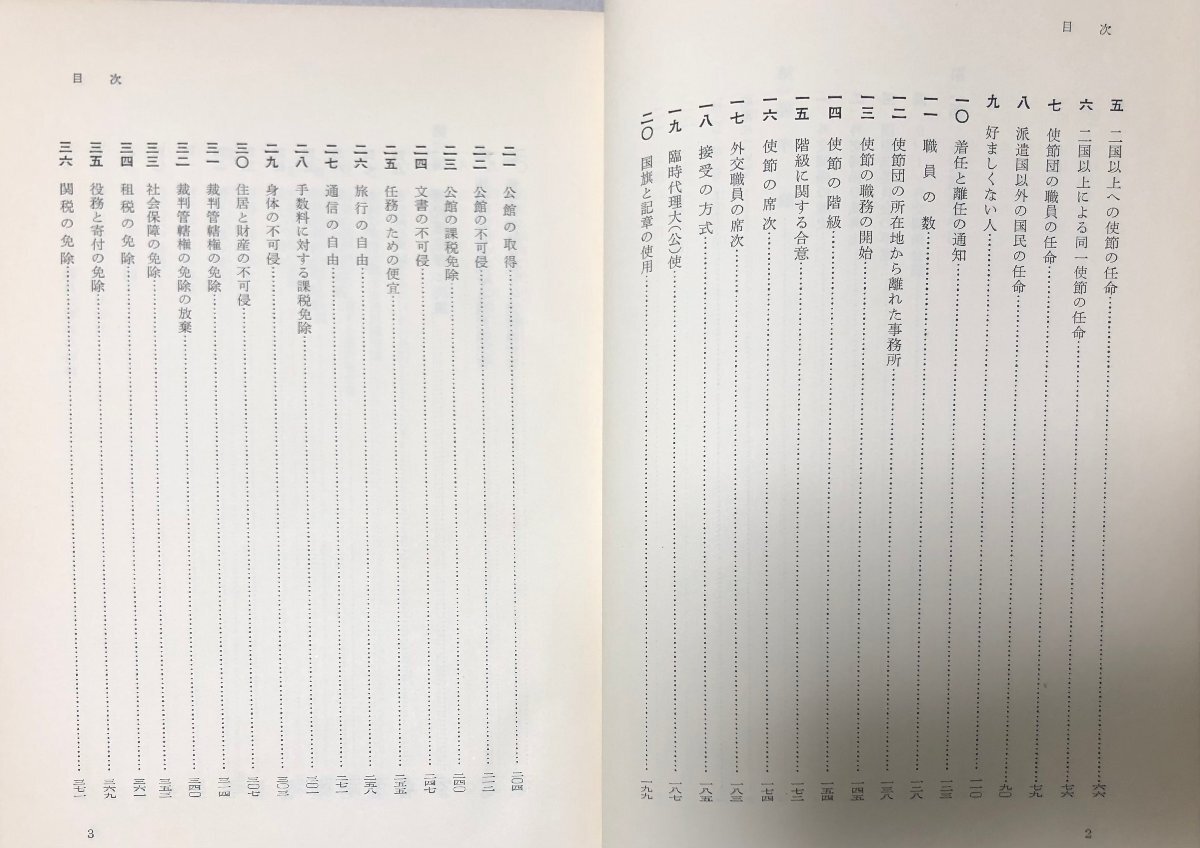 目次
五 二国以上への使節の任命……六六
六 二国以上による同一使節の任命……七六
七 使節団の職員の任命……七九
八 派遣国以外の国民の任命……九〇
九 好ましくない人……一一〇
一〇 着任と離任の通知……一二三
一一 職員の数……一二八
一二 使節団の所在地から離れた事務所……一三八
一三 使節の職務の開始……一四四
一四 使節の階級……一五四
一五 階級に関する合意……一七二
一六 使節の席次……一七四
一七 外交職員の席次……一八三
一八 接受の方式……一八五
一九 臨時代理大(公)使……一八七
二〇 国旗と記章の使用……一九九
2
目次
二一 公館の取得……二〇四
二二 公館の不可侵……二一二
二三 公館の課税免除……二四〇
二四 文書の不可侵……二四七
二五 任務のための便宜……二五五
二六 旅行の自由……二五八
二七 通信の自由……二七一
二八 手数料に対する課税免除……三〇一
二九 身体の不可侵……三〇三
三〇 住居と財産の不可侵……三〇七
三一 裁判管轄権の免除……三一四
三二 裁判管轄権の免除の放棄……三四〇
三三 社会保障の免除……三五二
三四 租税の免除……三六一
三五 役務と寄付の免除……三六九
三六 関税の免除……三七一
3